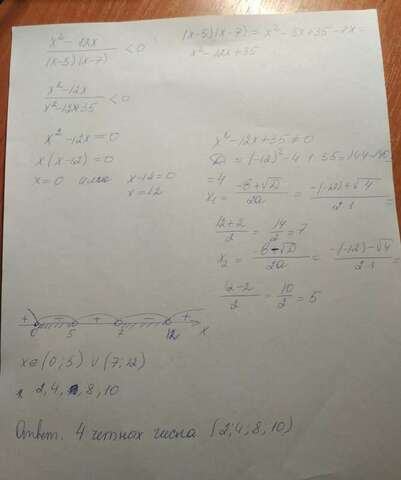 x² - 12x / (x-5)(x-7) < 0
(x-5)(x-7) = x² - 5x + 35 - 7x =
x² - 12x + 35
x² - 12x / x² - 12x + 35 < 0
x² - 12x = 0
x(x-12) = 0
x = 0 или x - 12 = 0
x = 12
x² - 12x + 35 ≠ 0
D = (-12)² - 4 · 1 · 35 = 144 - 140
= 4
x₁ = -b + √D / 2a = -(-12) + √4 / 2·1 =
12 + 2 / 2 = 14 / 2 = 7
x₂ = -b - √D / 2a = -(-12) - √4 / 2·1 =
12 - 2 / 2 = 10 / 2 = 5
+ - + - +
0 5 7 12 x
x ∈ (0; 5) ∪ (7; 12)
2, 4, 8, 10
Ответ. 4 четных числа (2; 4; 8; 10)